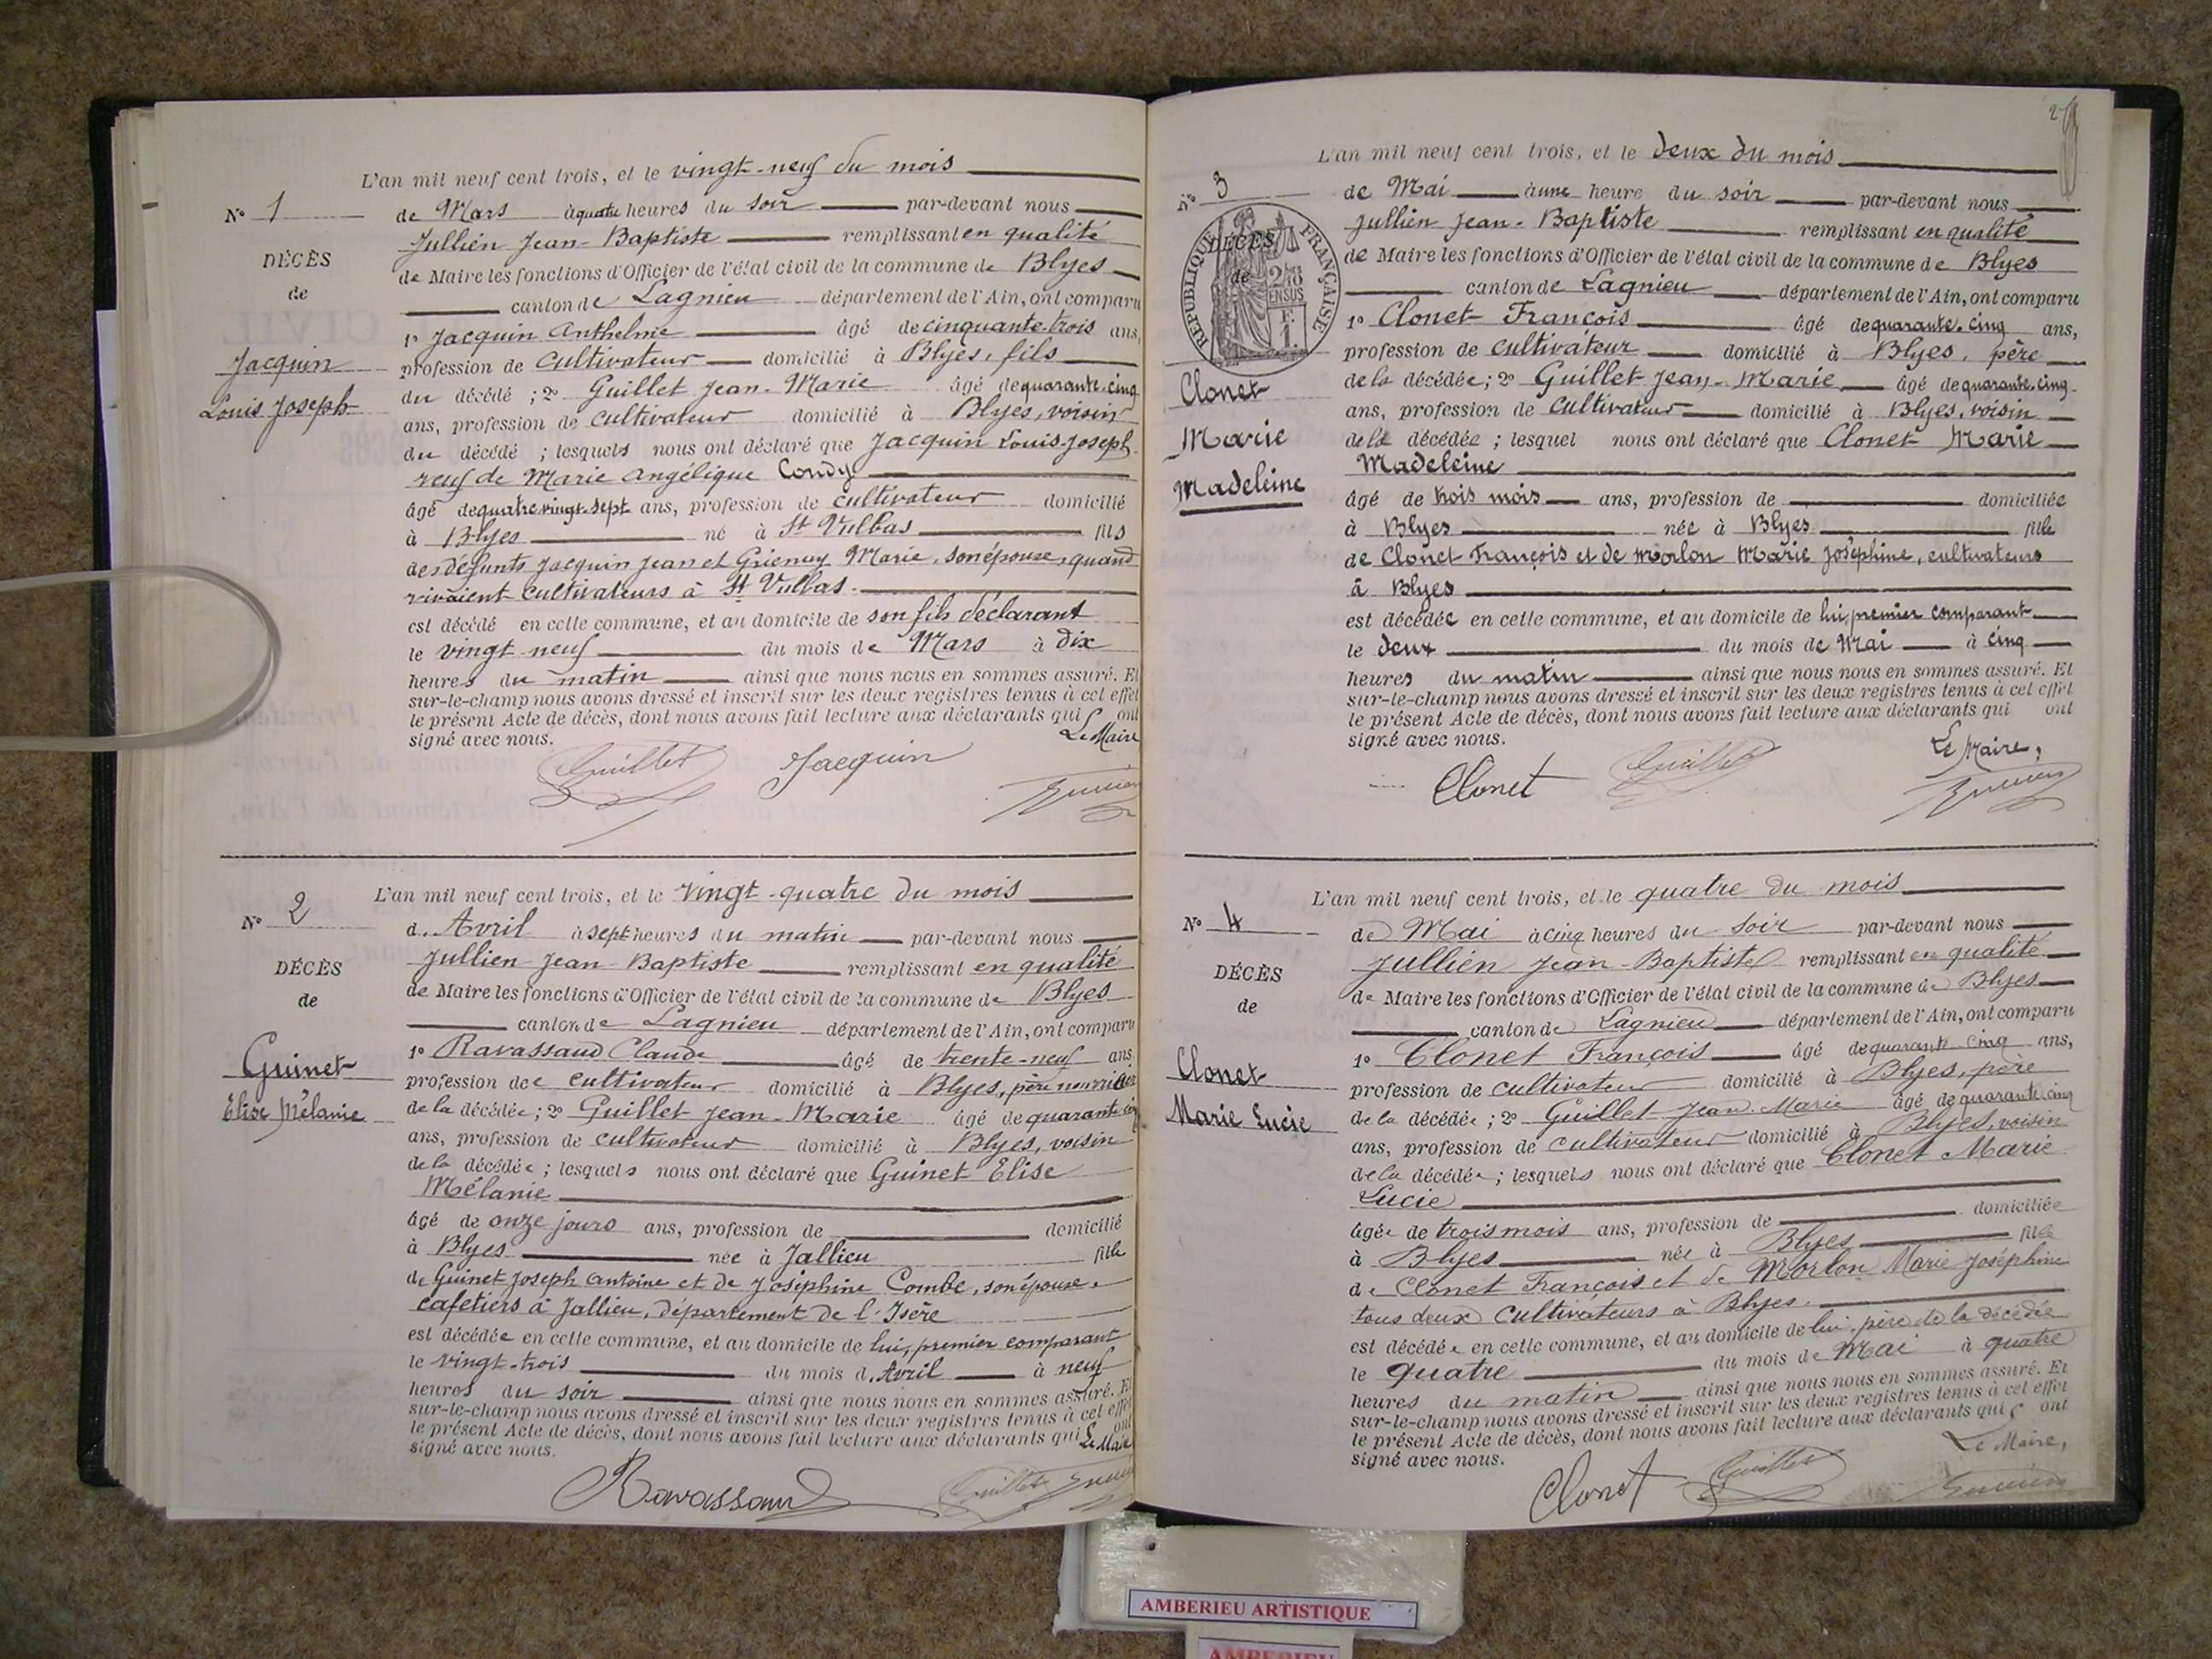 L'an mil neuf cent trois, et le vingt-neuf du mois
N° 1
de Mars à quatre heures du soir par-devant nous
Jullien Jean-Baptiste remplissant en qualité
DÉCÈS
de Maire les fonctions d'Officier de l'état civil de la commune de Blyes
de
canton de Lagnieu département de l'Ain, ont comparu
1° Jacquin Anthelme âgé de cinquante-trois ans,
Jacquin
profession de cultivateur domicilié à Blyes, fils
Louis Joseph
du décédé ; 2° Guillet Jean-Marie âgé de quarante-cinq
ans, profession de cultivateur domicilié à Blyes, voisin
du décédé ; lesquels nous ont déclaré que Jacquin Louis-Joseph
veuf de Marie Angélique Condy
âgé de quatre-vingt-sept ans, profession de cultivateur domicilié
à Blyes né à St Vulbas fils
des défunts Jacquin Jean et Marie, son épouse, quand
vivaient cultivateurs à St Vulbas.
est décédé en cette commune, et au domicile de son fils déclarant
le vingt-neuf du mois de Mars à dix
heures du matin ainsi que nous nous en sommes assuré. Et
sur-le-champ nous avons dressé et inscrit sur les deux registres tenus à cet effet
le présent Acte de décès, dont nous avons fait lecture aux déclarants qui ont
signé avec nous. Le Maire
Guillet Jacquin
L'an mil neuf cent trois, et le vingt-quatre du mois
N° 2
d'Avril à sept heures du matin par-devant nous
Jullien Jean-Baptiste remplissant en qualité
DÉCÈS
de Maire les fonctions d'Officier de l'état civil de la commune de Blyes
de
canton de Lagnieu département de l'Ain, ont comparu
1° Ravassaud Claude âgé de trente-neuf ans
Guinet
profession de cultivateur domicilié à Blyes, père nourricier
Elise Mélanie
de la décédée ; 2° Guillet Jean-Marie âgé de quarante-cinq
ans, profession de cultivateur domicilié à Blyes, voisin
de la décédée ; lesquels nous ont déclaré que Guinet Elise
Mélanie
âgé de onze jours ans, profession de domicilié
à Blyes née à Jallieu fille
de Guinet Joseph Antoine et de Joséphine Combe, son épouse,
cafetiers à Jallieu, département de l'Isère
est décédée en cette commune, et au domicile de lui, premier comparant
le vingt-trois du mois d'Avril à neuf
heures du soir ainsi que nous nous en sommes assuré. Et
sur-le-champ nous avons dressé et inscrit sur les deux registres tenus à cet effet
le présent Acte de décès, dont nous avons fait lecture aux déclarants qui ont
signé avec nous. Le Maire
Ravassaud Guillet
2
L'an mil neuf cent trois, et le deux du mois
N° 3
de Mai à une heure du soir par-devant nous
Jullien Jean-Baptiste remplissant en qualité
RÉPUBLIQUE FRANÇAISE
DÉCÈS
de
EN SUS
F.
1.
de Maire les fonctions d'Officier de l'état civil de la commune de Blyes
canton de Lagnieu département de l'Ain, ont comparu
1° Clonet François âgé de quarante-cinq ans,
profession de cultivateur domicilié à Blyes, père
Clonet
de la décédée ; 2° Guillet Jean-Marie âgé de quarante-cinq
ans, profession de cultivateur domicilié à Blyes, voisin
Marie
de la décédée ; lesquel nous ont déclaré que Clonet Marie
Madeleine
Madeleine
âgé de trois mois ans, profession de domiciliée
à Blyes née à Blyes fille
de Clonet François et de Morlon Marie Joséphine, cultivateurs
à Blyes
est décédée en cette commune, et au domicile de lui, premier comparant
le deux du mois de Mai à cinq
heures du matin ainsi que nous nous en sommes assuré. Et
sur-le-champ nous avons dressé et inscrit sur les deux registres tenus à cet effet
le présent Acte de décès, dont nous avons fait lecture aux déclarants qui ont
signé avec nous. Le Maire,
Clonet Guillet
L'an mil neuf cent trois, et le quatre du mois
N° 4
de Mai à cinq heures du soir par-devant nous
Jullien Jean-Baptiste remplissant en qualité
DÉCÈS
de Maire les fonctions d'Officier de l'état civil de la commune de Blyes
de
canton de Lagnieu département de l'Ain, ont comparu
1° Clonet François âgé de quarante-cinq ans,
Clonet
profession de cultivateur domicilié à Blyes, père
Marie Lucie
de la décédée ; 2° Guillet Jean-Marie âgé de quarante-cinq
ans, profession de cultivateur domicilié à Blyes, voisin
de la décédée ; lesquels nous ont déclaré que Clonet Marie
Lucie
âgée de trois mois ans, profession de domiciliée
à Blyes née à Blyes fille
de Clonet François et de Morlon Marie Joséphine
tous deux cultivateurs à Blyes.
est décédée en cette commune, et au domicile de lui, père de la décédée
le quatre du mois de Mai à quatre
heures du matin ainsi que nous nous en sommes assuré. Et
sur-le-champ nous avons dressé et inscrit sur les deux registres tenus à cet effet
le présent Acte de décès, dont nous avons fait lecture aux déclarants qui ont
signé avec nous. Le Maire,
Clonet Guillet
AMBERIEU ARTISTIQUE
AMBERIEU